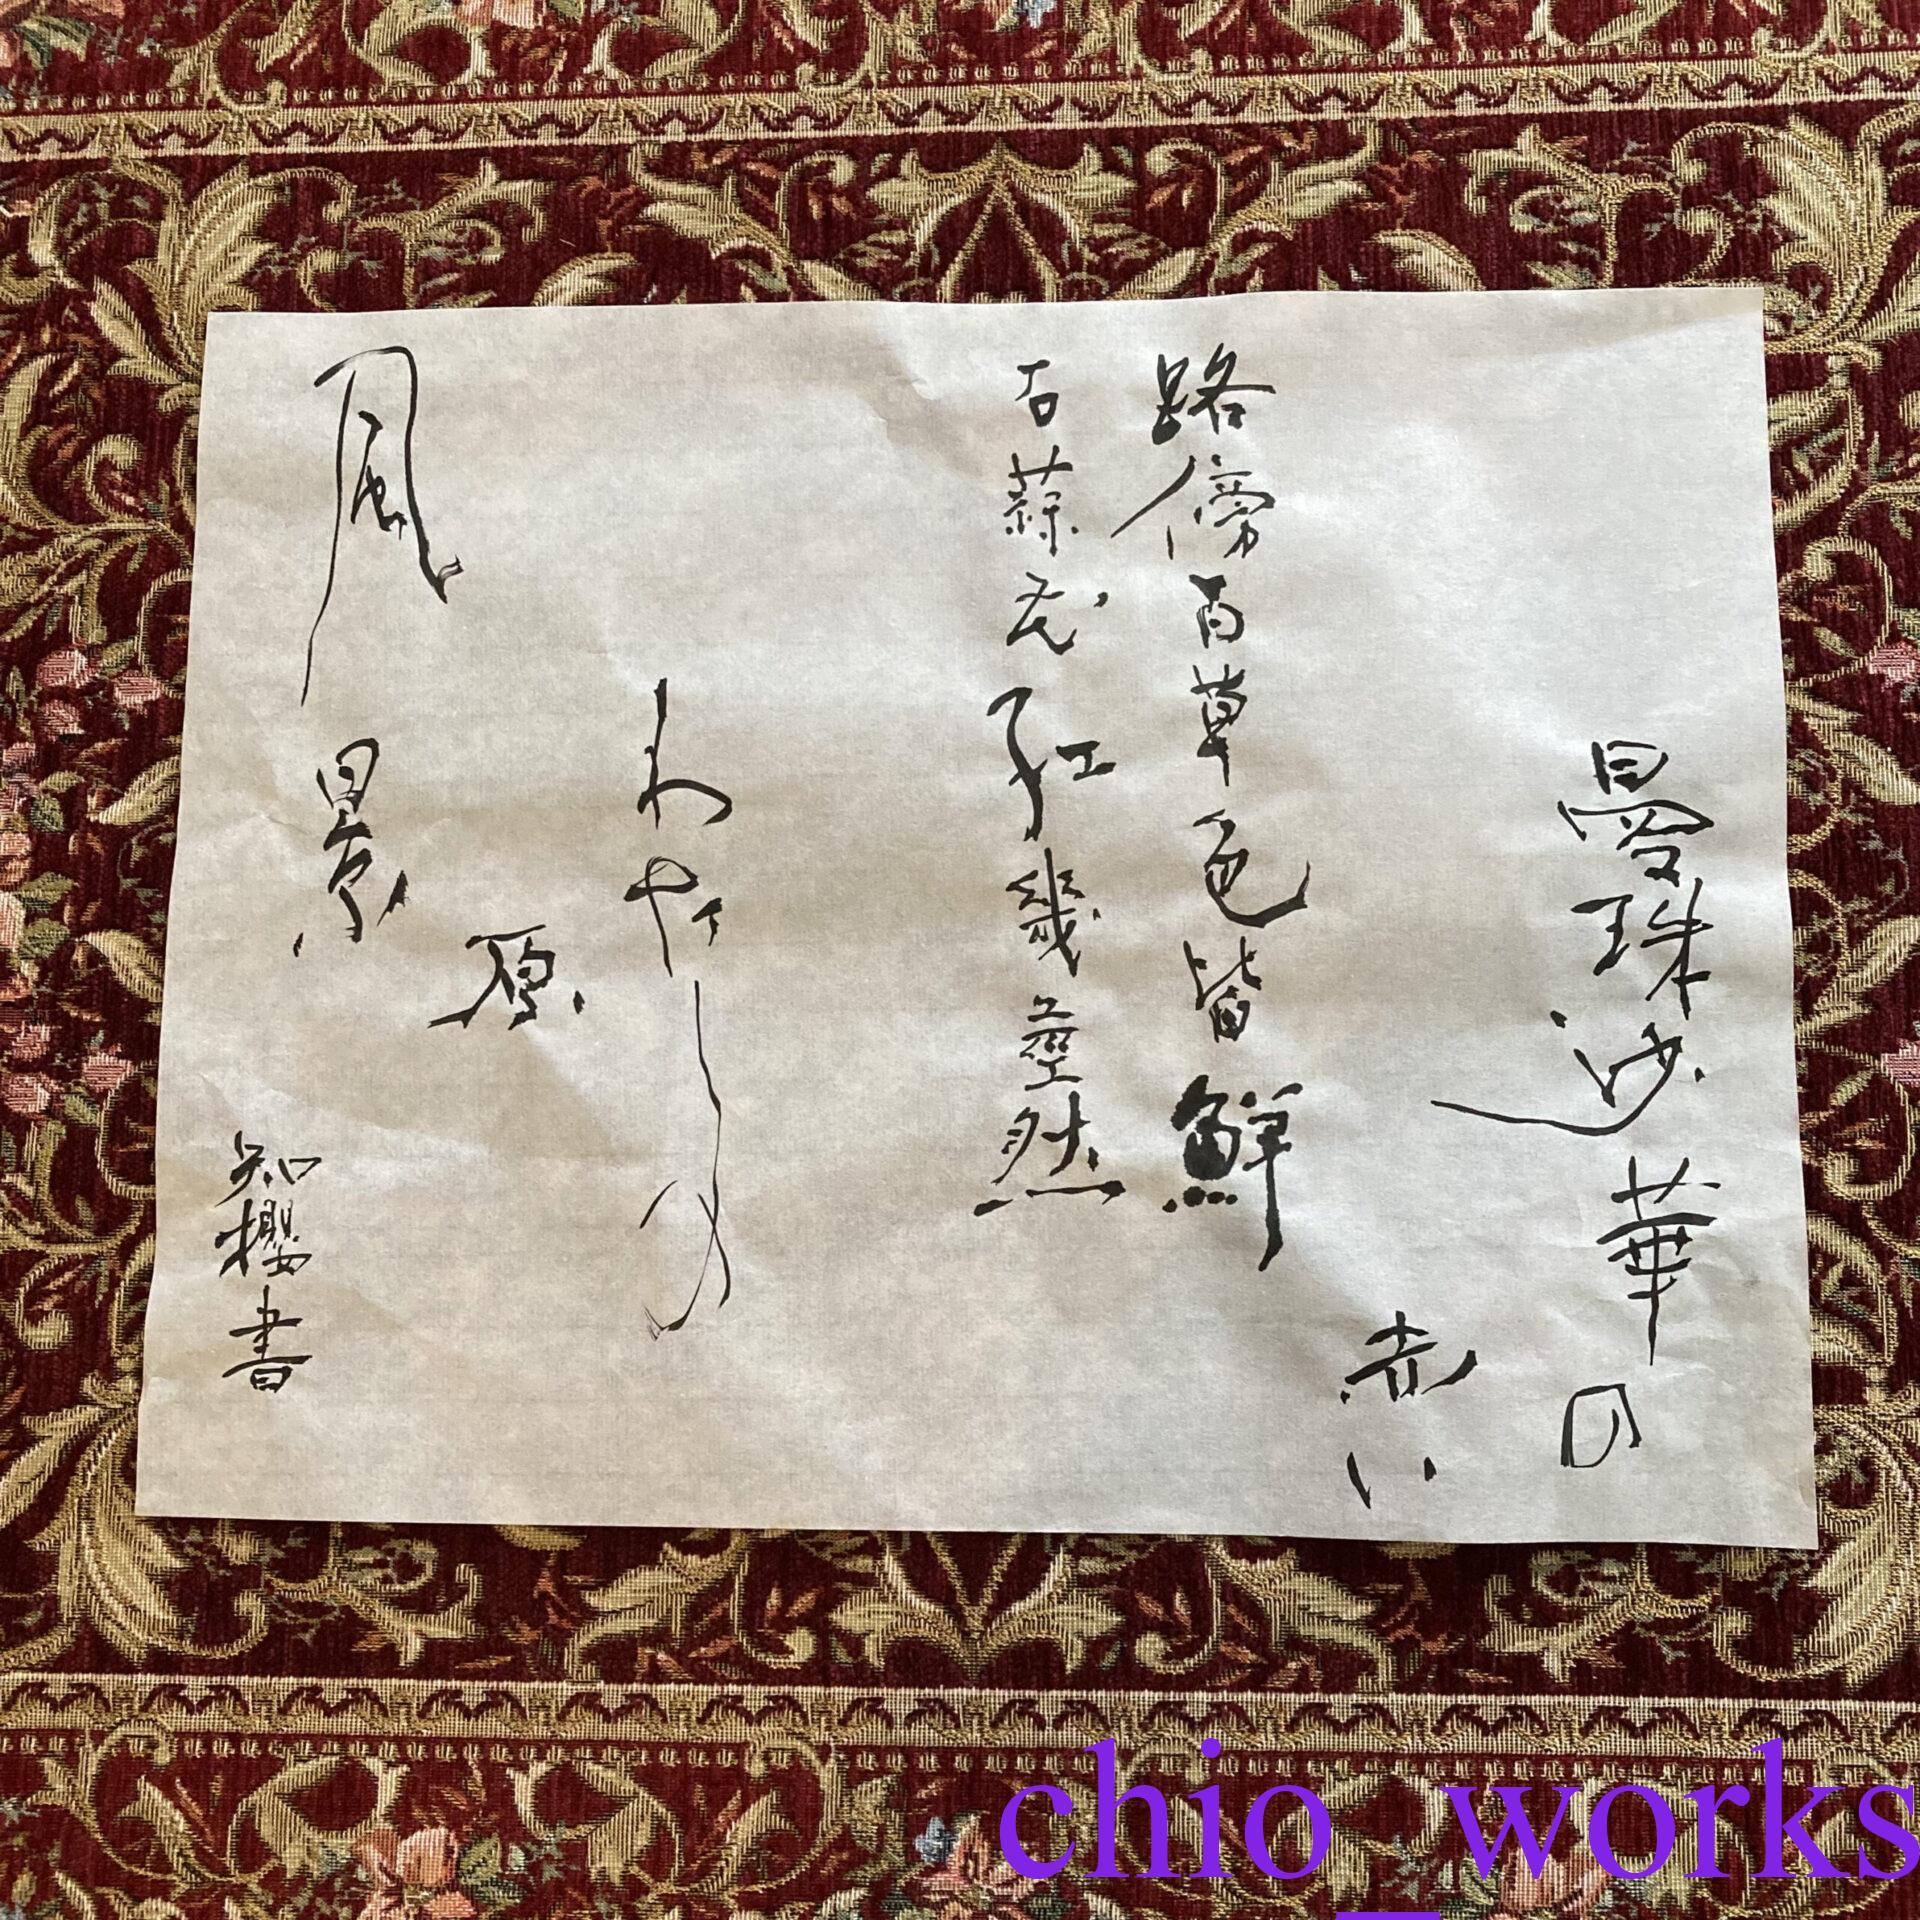 曼珠沙華の
赤い
路傍百草色皆鮮
石蒜花紅幾壑然
わたしの
原
風景
知櫻書
chio_works